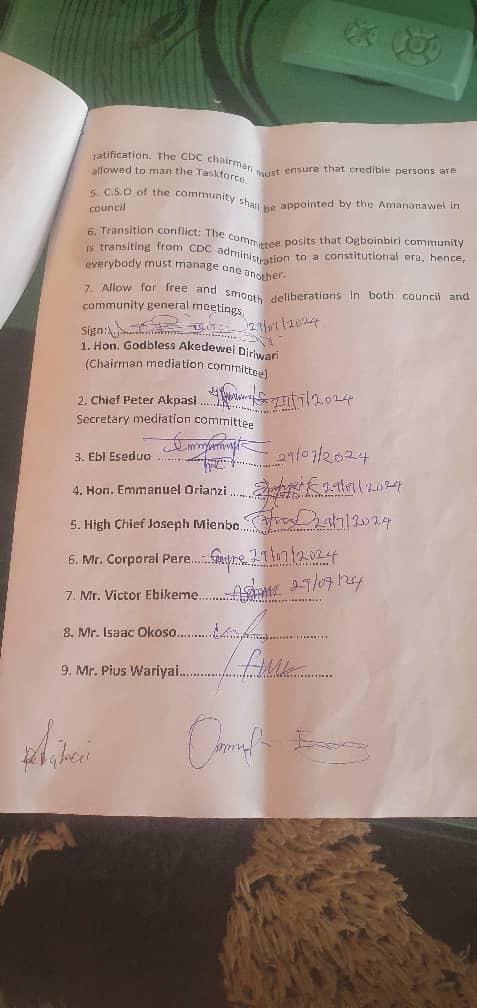 ratification. The CDC chairman must ensure that credible persons are
allowed to man the Taskforce.
5. C.S.O of the community shall be appointed by the Amananawei in
council
6. Transition conflict: The committee posits that Ogboinbiri community
is transiting from CDC administration to a constitutional era, hence,
everybody must manage one another.
7. Allow for free and smooth deliberations in both council and
community general meetings.
Sign: 29/07/2024
1. Hon. Godbless Akedewei Diriwari
(Chairman mediation committee)
2. Chief Peter Akpasi ..... 29/7/2024
Secretary mediation committee
3. Ebi Eseduo ............ 29/07/2024
4. Hon. Emmanuel Orianzi ..... 29/07/2024
5. High Chief Joseph Mienbo... 29/7/2024
6. Mr. Corporal Pere..... 29/07/2024
7. Mr. Victor Ebikeme........ 29/07/24
8. Mr. Isaac Okoso........
9. Mr. Pius Wariyai........